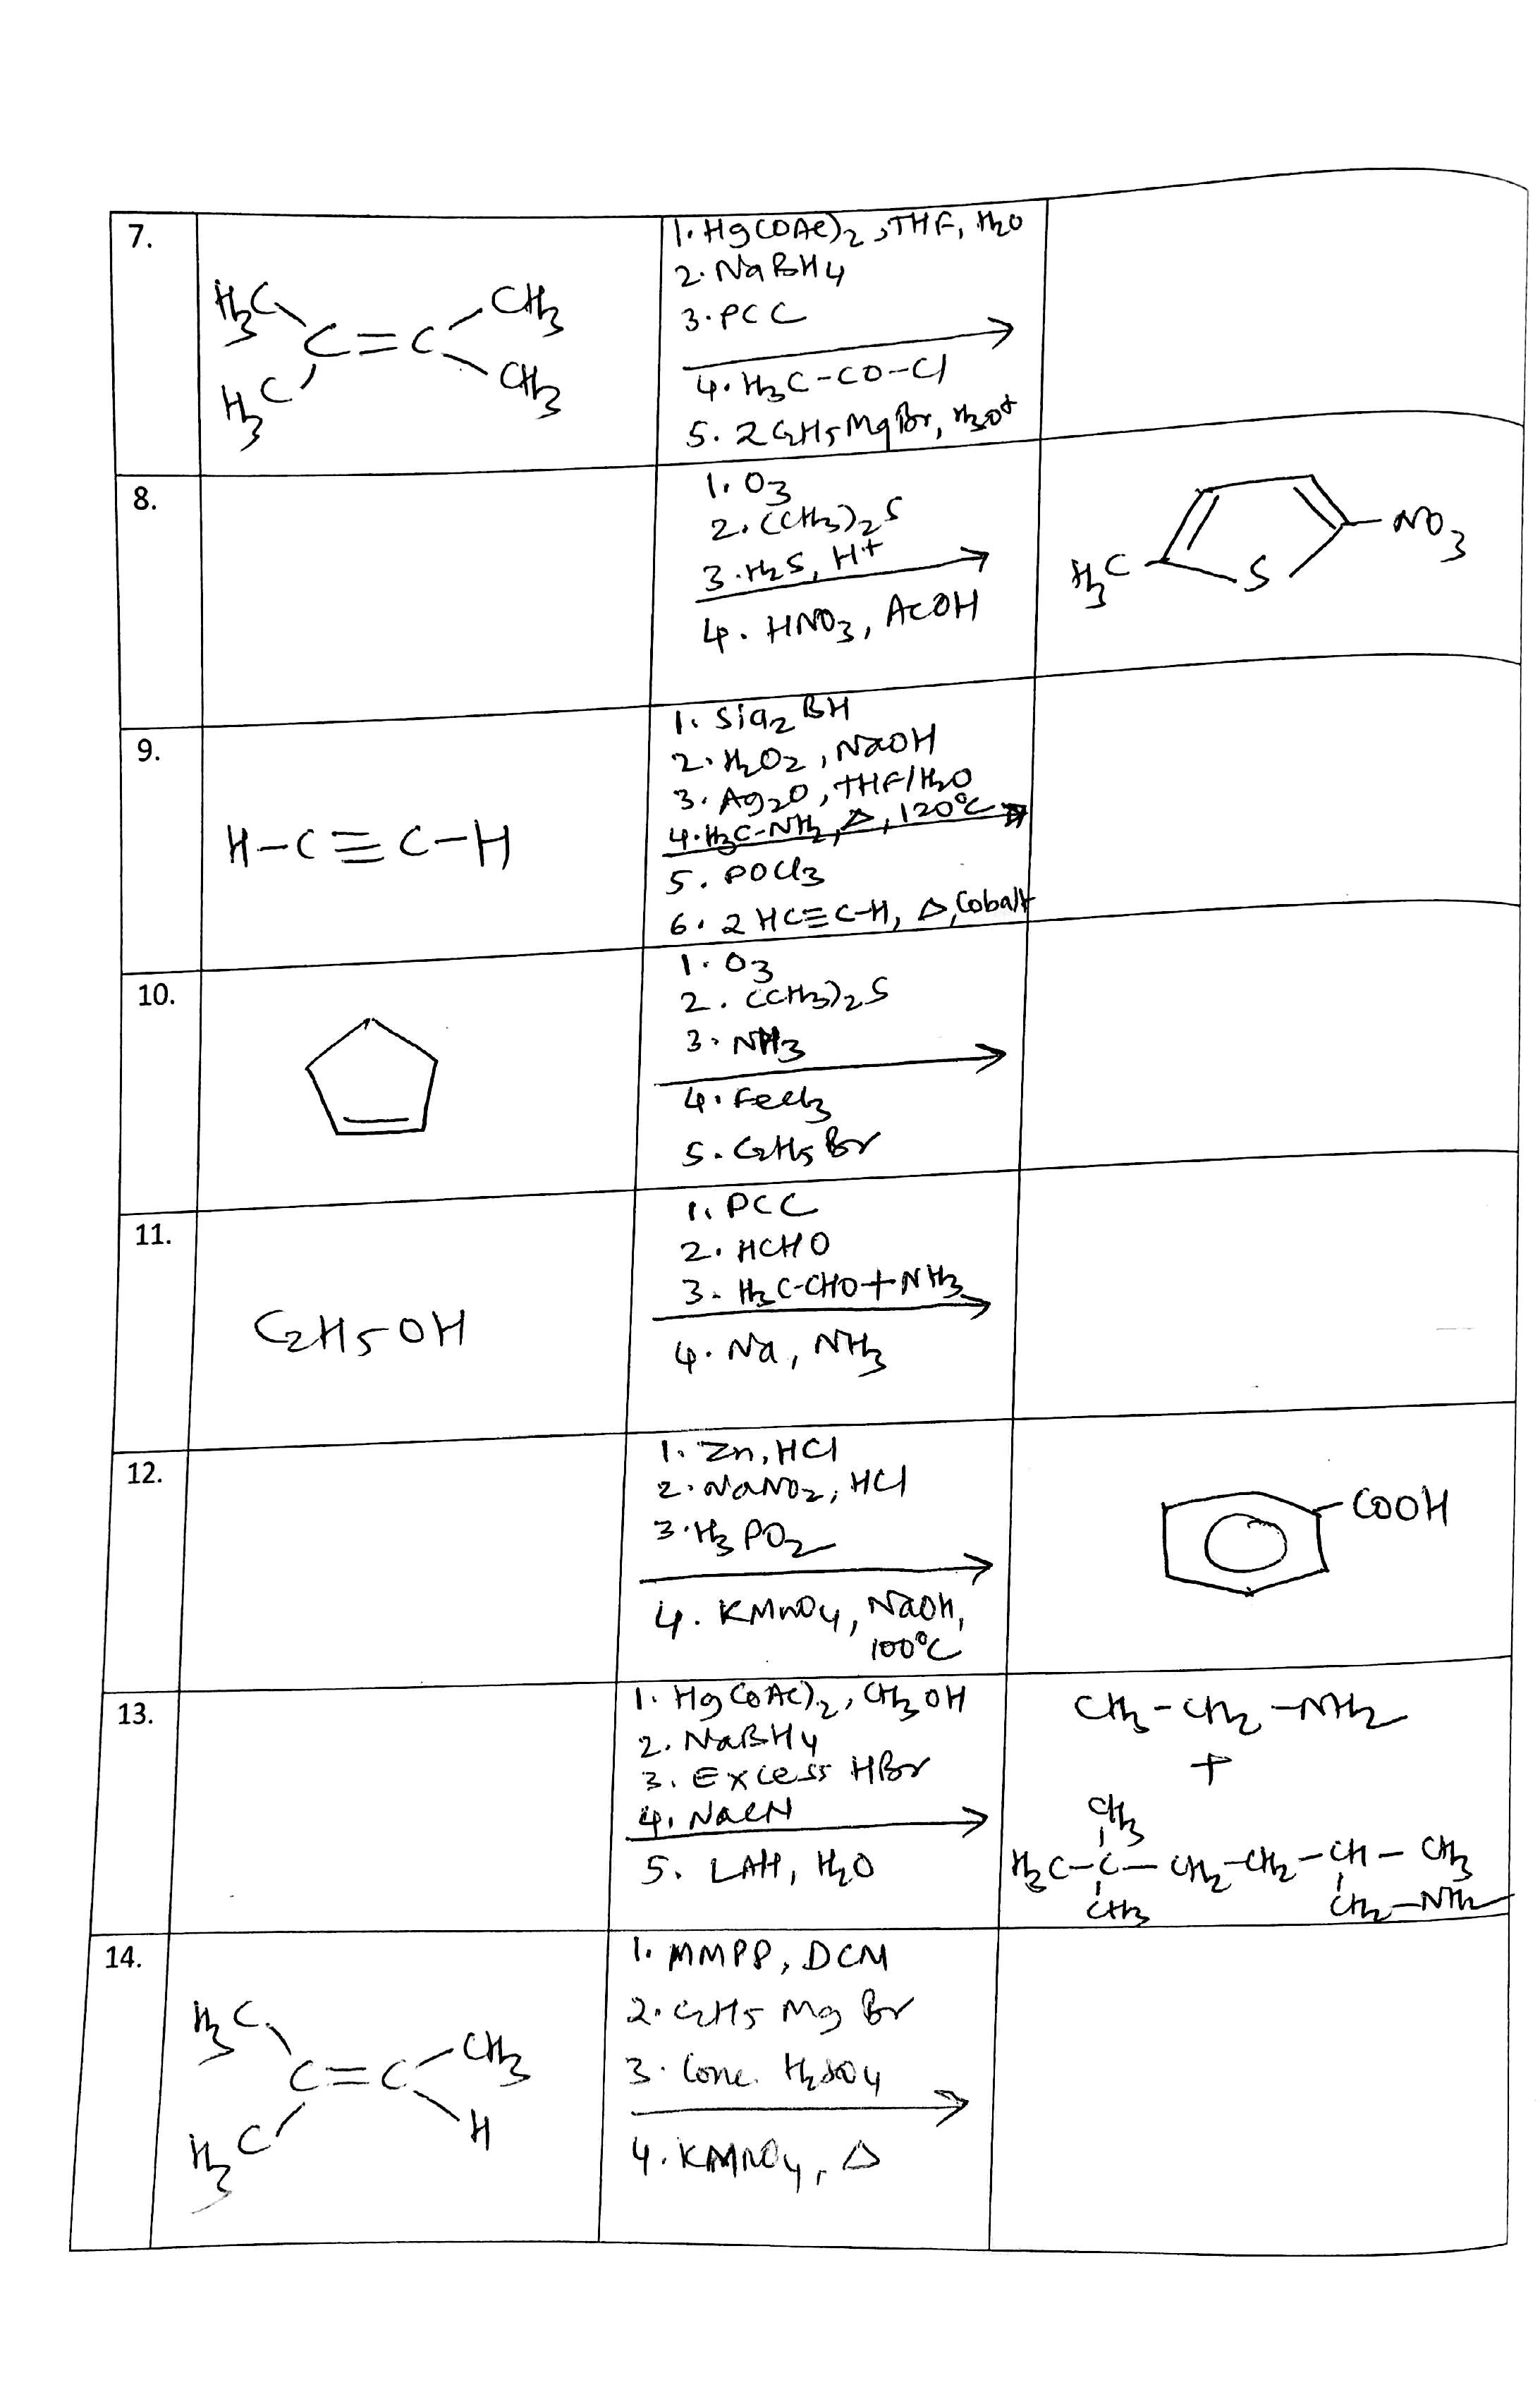 7.
H3C
CH3
C=C
H3C
CH3
1. Hg(OAc)2, THF, H2O
2. NaBH4
3. PCC
4. H3C-CO-Cl
5. 2 C2H5MgBr, H3O+
8.
1. O3
2. (CH3)2S
3. H2S, H+
4. HNO3, AcOH
H3C
S
NO3
9.
H-C≡C-H
1. Sia2BH
2. H2O2, NaOH
3. Ag2O, THF/H2O
4. H3C-NH2, Δ, 120°C
5. POCl3
6. 2 HC≡C-H, Δ, Cobalt
10.
1. O3
2. (CH3)2S
3. NH3
4. FeCl3
5. C2H5Br
11.
C2H5OH
1. PCC
2. HCHO
3. H3C-CHO+NH3
4. Na, NH3
12.
1. Zn, HCl
2. NaNO2, HCl
3. H3PO2
4. KMnO4, NaOH,
100°C
COOH
13.
1. Hg(OAc)2, CH3OH
2. NaBH4
3. Excess HBr
4. NaCN
5. LAH, H2O
CH3-CH2-NH2
+
CH3
H3C-C-CH2-CH2-CH-CH3
CH3
CH2-NH2
14.
H3C
CH3
C=C
H3C
H
1. MMPP, DCM
2. C2H5MgBr
3. Conc. H2SO4
4. KMnO4, Δ